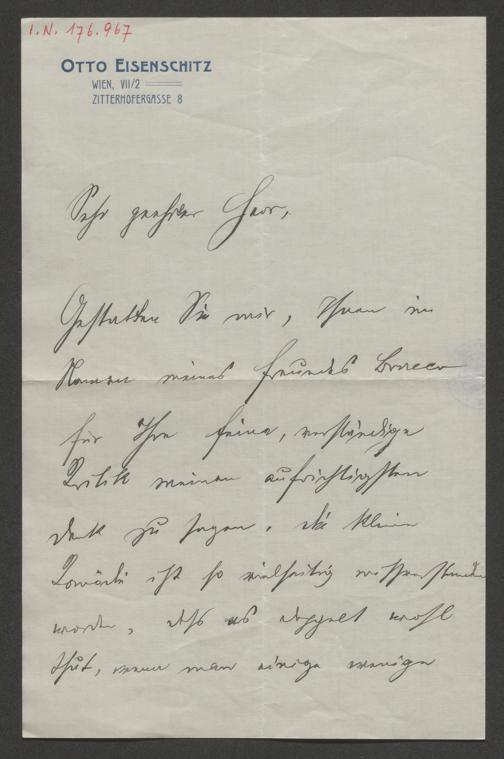 I.N. 176.967
OTTO EISENSCHITZ
WIEN, VII/2
ZITTERHOFERGASSE 8
Sehr geehrter Herr,
Gestatten Sie mir, Ihnen im
Namen meines Freundes Bracco
für Ihre feine, verständige
Kritik meinen aufrichtigsten
Dank zu sagen. Die kleine
Komödie ist so vielseitig missverstanden
worden, dass es doppelt wohl
thut, wenn man einige wenige